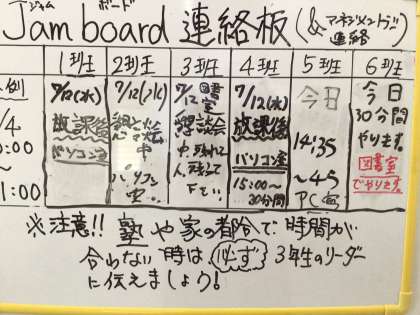 ジャム ボード
Jamboard 連絡板 (&マネジメントデー連絡)
1班 2班 3班 4班 5班 6班
例
/4
0:00
〜
1:00
7/12(水)
放課後
パソコン室
7/12(水)
懇談中
パソコン室
7/12 図書室
懇談会
中、
下さい
7/12(水)
放課後
パソコン室
15:00〜
30分間
今日
14:35
〜45
PC室
今日
30分間
やります。
図書室
でやります。
※注意!! 塾や家の都合で時間が
合わない時は必ず3年生のリーダー
に伝えましょう!